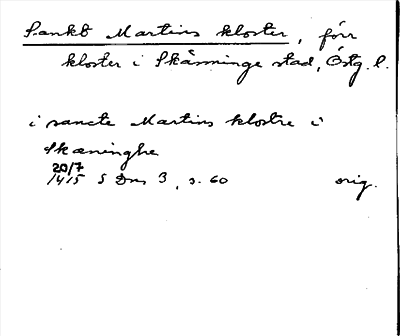 Sankt Martins kloster, förr
kloster i Skänninge stad, Östg. l.
i sancte Martins klostre i
Skæninghe
20/7
1415 S Dns 3, s. 60 orig.